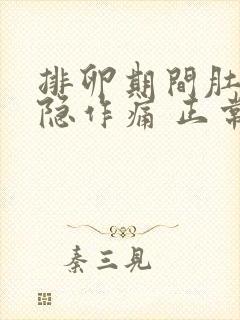 排卵期間肚
隐作痛 正常
秦三見